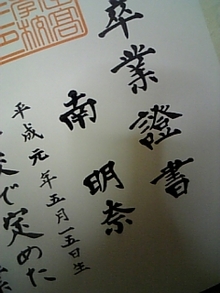 卒業證書
南 明奈
平成元年五月一五日生
で定めた